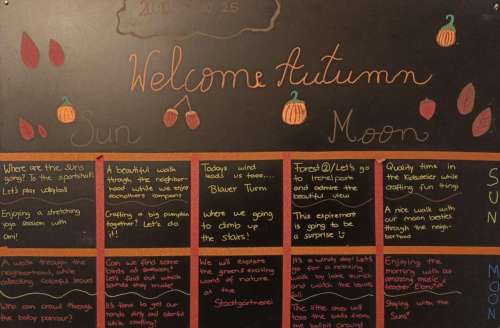 Welcome Autumn
Sun
Moon
Where are the suns
going? To the sportshall!
Let's play volleyball
Enjoying a stretching
yoga session with
A beautiful walk
through the neighbor-
hood while we enjoy
eachothers company
Crafting a big pumpkin
together? Let's do
it!
Todays wind
leads us tooo...
Blauer Turm
where we going
to climb up
the stairs!
Forest ②/Let's go
to Irenicpark
and admire the
beautiful view
This expirement
is going to be
a surprise
Quality time in
the Kidsatelier while
crafting fun things
A nice walk with
our moon besties
through the neigh-
borhood
SUN
A walk through the
neighborhood, while
collecting colorful leaves
Who can crawl through
the baby parcour?
Can we find some
birds at
Let's find out which
sounds they make!
It's time to get our
hands dirty and colorful
while crafting!
We will explore
the greatest exciting
world of nature
at
Stadtgärtnerei
It's a windy day! Let's
go for a morning
walk by
and watch the
The little ones will
toss the balls from
Enjoying the
morning with our
amazing
teacher Ebru
Staying with the
Suns
MOON